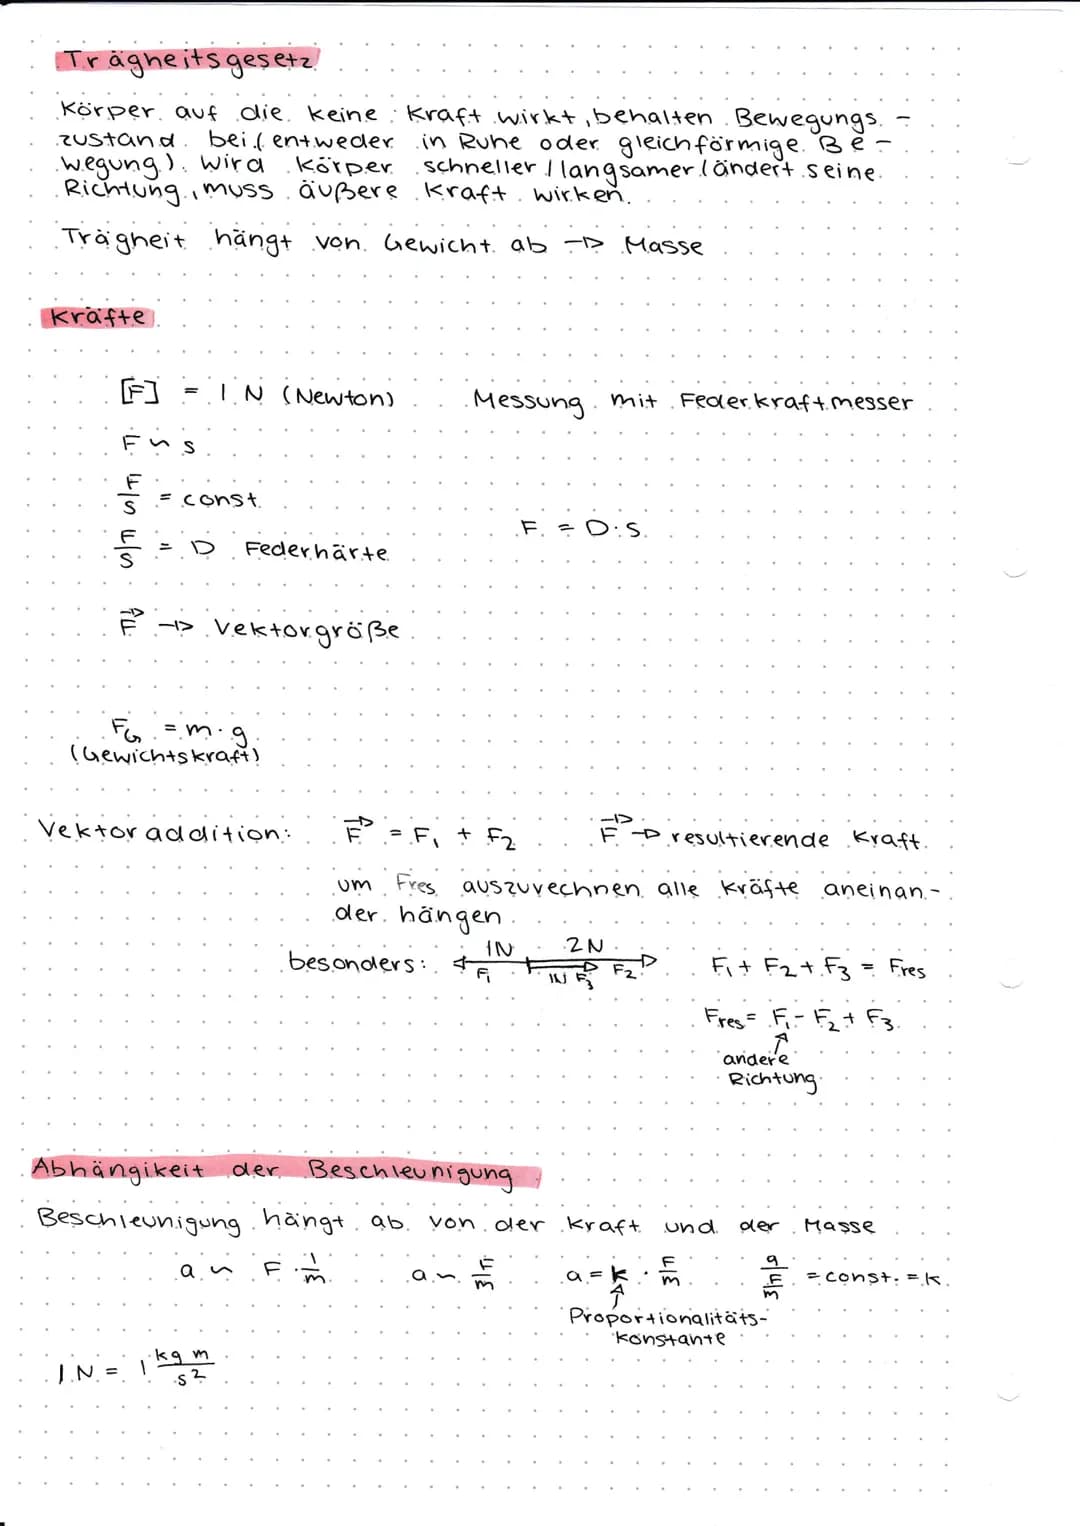 Trägheitsgesetz
Körper auf die keine Kraft wirkt, behalten Bewegungs-
zustand bei (entweder in Ruhe oder gleichförmige Be-
wegung). Wird Körper schneller / langsamer / ändert seine
Richtung, muss äußere Kraft wirken.
Trägheit hängt von Gewicht ab → Masse
Kräfte
[F] = 1 N (Newton) Messung mit Federkraftmesser
F ~ s
F/s = const.
F/s = D Federhärte F = D · s
F⃗ → Vektorgröße
F_G = m · g
(Gewichtskraft)
Vektoraddition: F⃗ = F₁ + F₂ F⃗ → resultierende Kraft
um Fres auszuvechnen alle Kräfte aneinan-
der hängen
besonders: 1N F₁ 2N F₂ 1N F₃ F₁ + F₂ + F₃ = Fres
Fres = F₁ - F₂ + F₃
andere
Richtung
Abhängikeit der Beschleunigung
Beschleunigung hängt ab von der Kraft und der Masse
a ~ F · 1/m a ~ F/m a = k · F/m a/(F/m) = const. = k
Proportionalitäts-
konstante
1 N = 1 kg m/s²